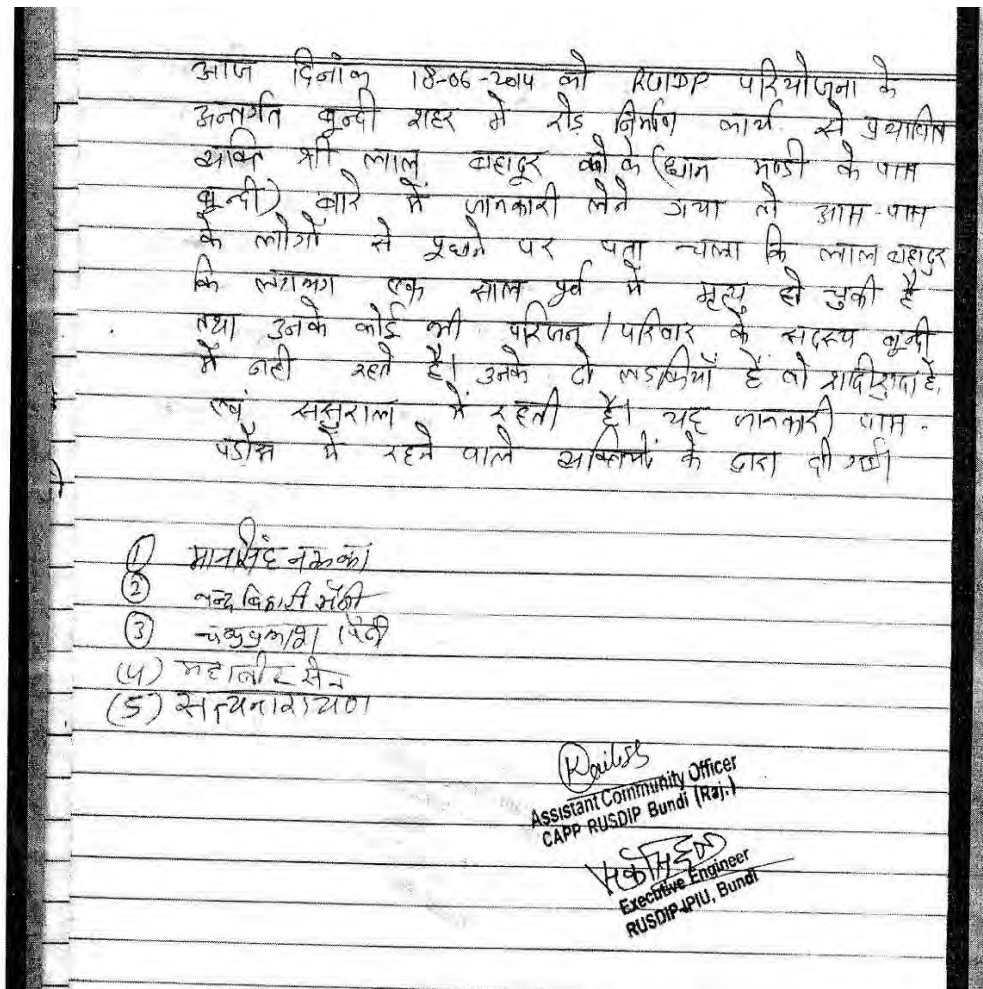 आज दिनांक 18-06-2014 को RUIDP परियोजना के
अन्तर्गत बून्दी शहर में रोड़ निर्माण कार्य से प्रभावित
व्यक्ति श्री लाल बहादूर के (धान मण्डी के पास
बून्दी) बारे में जानकारी लेने गया तो आस-पास
के लोगों से पूछने पर पता चला कि लाल बहादुर
कि लगभग एक साल पूर्व में मृत्यु हो चुकी है
तथा उनके कोई भी परिजन / परिवार के सदस्य बून्दी
में नही रहते है। उनके दो लडकियाँ है वो शादीशुदा है,
एवं ससुराल में रहती है। यह जानकारी पास-
पडौस में रहने वाले व्यक्तियों के द्वारा दी गई।
① मानसिंह
② बिहारी सैनी
③
(4) महावीर सेन
(5) सत्यनारायण
Assistant Community Officer
CAPP RUSDIP Bundi (Raj.)
Executive Engineer
RUSDIP-IPIU, Bundi